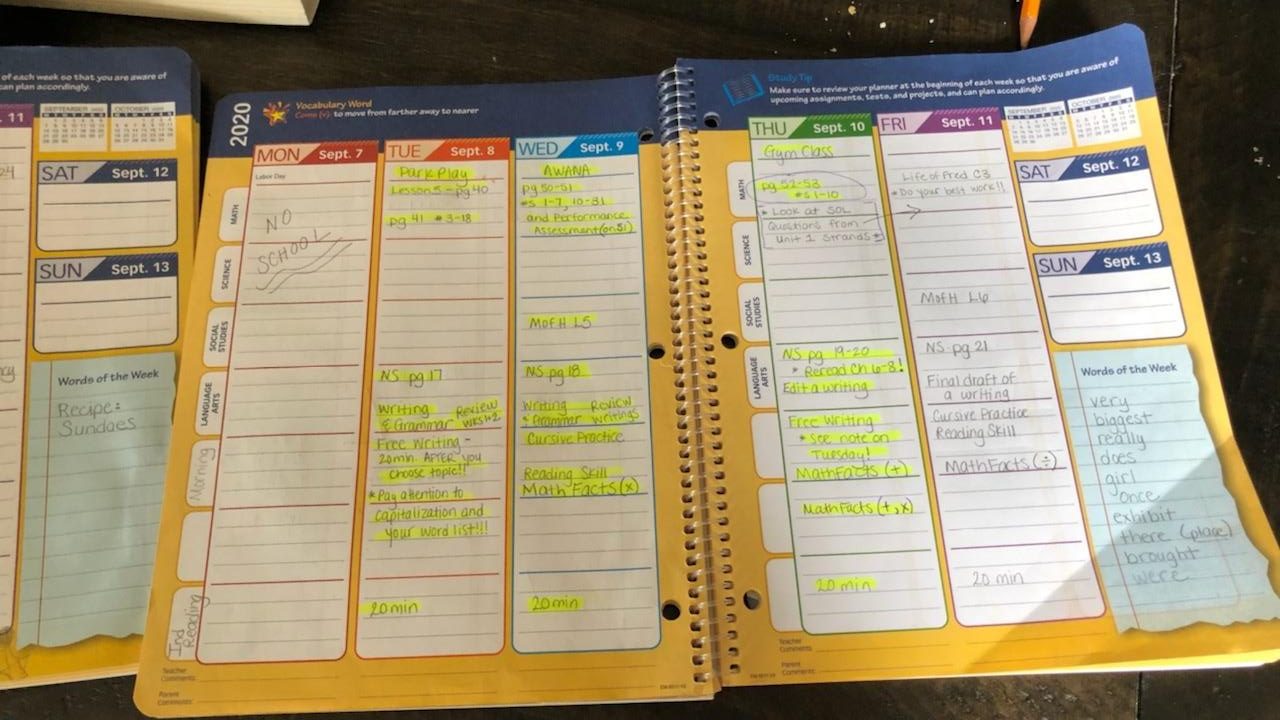 of each week so that you are aware of
can plan accordingly.
11
SEPTEMBER 2020
OCTOBER 2020
SAT Sept. 12
SUN Sept. 13
Words of the Week
Recipe:
Sundaes
2020
Vocabulary Word
Come (v) to move from farther away to nearer
MON Sept. 7
Labor Day
NO
SCHOOL
MATH
SCIENCE
SOCIAL STUDIES
LANGUAGE ARTS
Morning
Ind Reading
TUE Sept. 8
Park Play
Lesson 5 - pg 40
pg 41 #3-18
NS pg 17
Writing
& Grammar Review
Free Writing -
20 min. AFTER you
choose topic!!
*Pay attention to
capitalization and
your word list!!!
20 min
WED Sept. 9
AWANA
pg 50-51
#s 1-7, 10-31
and Performance
Assessment (on 51)
MofH L5
NS pg 18
Writing Review
& Grammar Writings
Cursive Practice
Reading Skill
Math Facts (x)
20 min
Teacher Comments:
Parent Comments:
Study Tip
Make sure to review your planner at the beginning of each week so that you are aware of
upcoming assignments, tests, and projects, and can plan accordingly.
THU Sept. 10
Gym Class
MATH
SCIENCE
SOCIAL STUDIES
LANGUAGE ARTS
pg 52-53
#s 1-10
* Look at SOL
Questions from
Unit 1 Strands *
NS pg 19-20
* Reread Ch 6-8!
Edit a writing
Free Writing
* See note on
Tuesday!
Math Facts (+)
Math Facts (+, x)
20 min
FRI Sept. 11
Life of Fred C3
*Do your best work!!
MofH L6
NS pg 21
Final draft of
a writing
Cursive Practice
Reading Skill
Math Facts (÷)
20 min
SEPTEMBER 2020
OCTOBER 2020
SAT Sept. 12
SUN Sept. 13
Words of the Week
very
biggest
really
does
girl
once
exhibit
there (place)
brought
were
Teacher Comments:
Parent Comments: